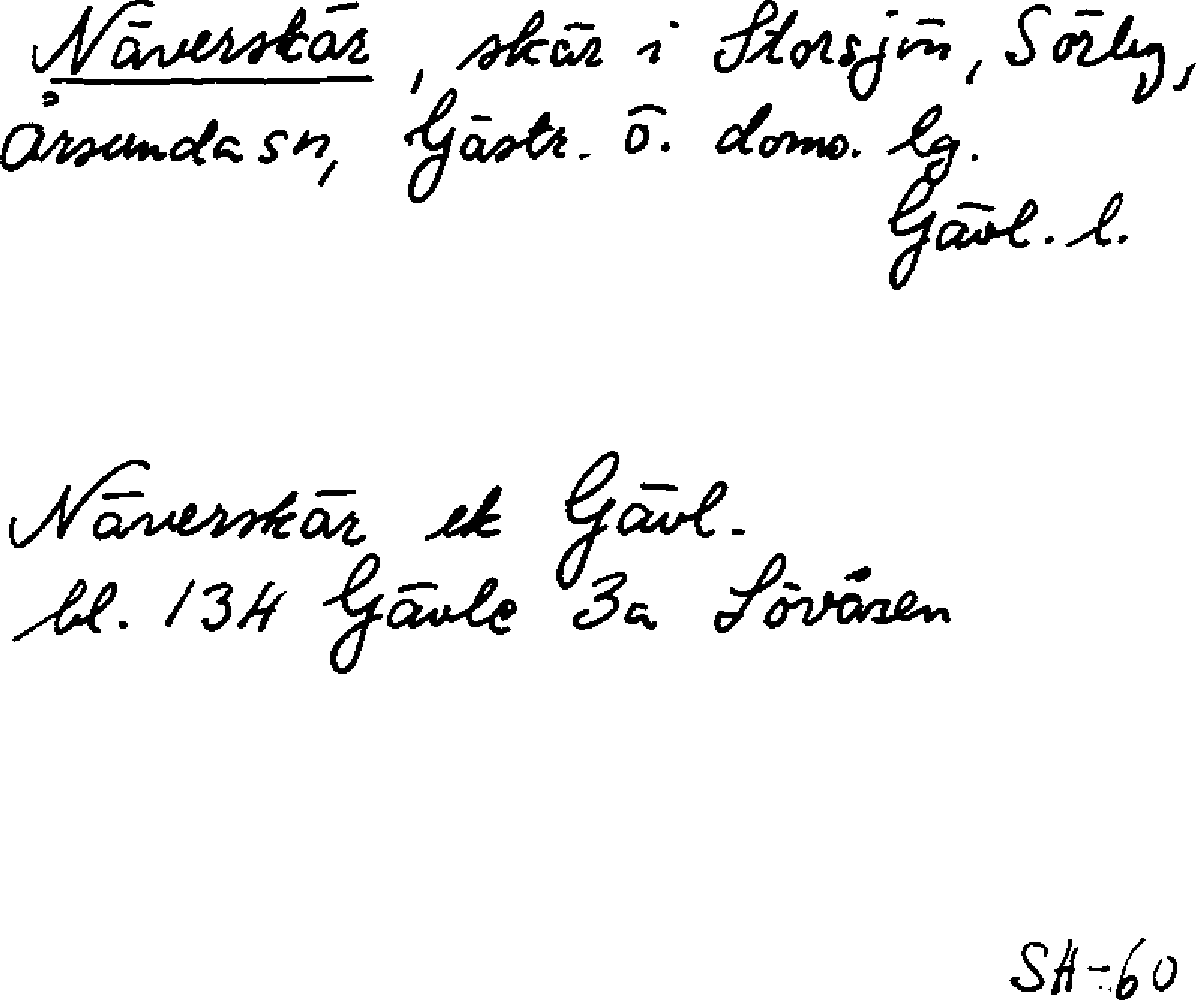 Näverskär, skär i Storsjön, Sörby,
Årsunda sn, Gästr. ö. doms. lg.
Gävl. l.
Näverskär ek Gävl.
bl. 134 Gävle 3a Lövåsen
SH-60